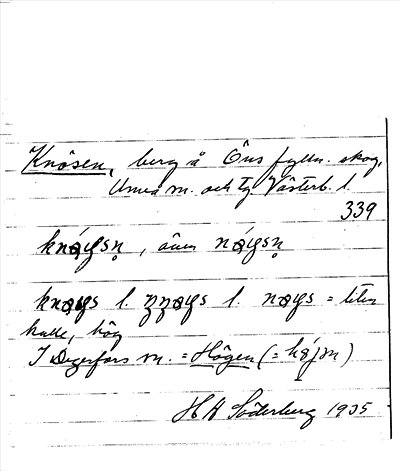 Knösen, berg å Öns fylln. skog,
Umeå m. och tg. Västerb. l.
339
knǿysn̥, även nǿysn̥
knøys l. l. nøys = liten
kulle, hög
I Degerfors m. = Högen (= )
H H Söderberg 1935